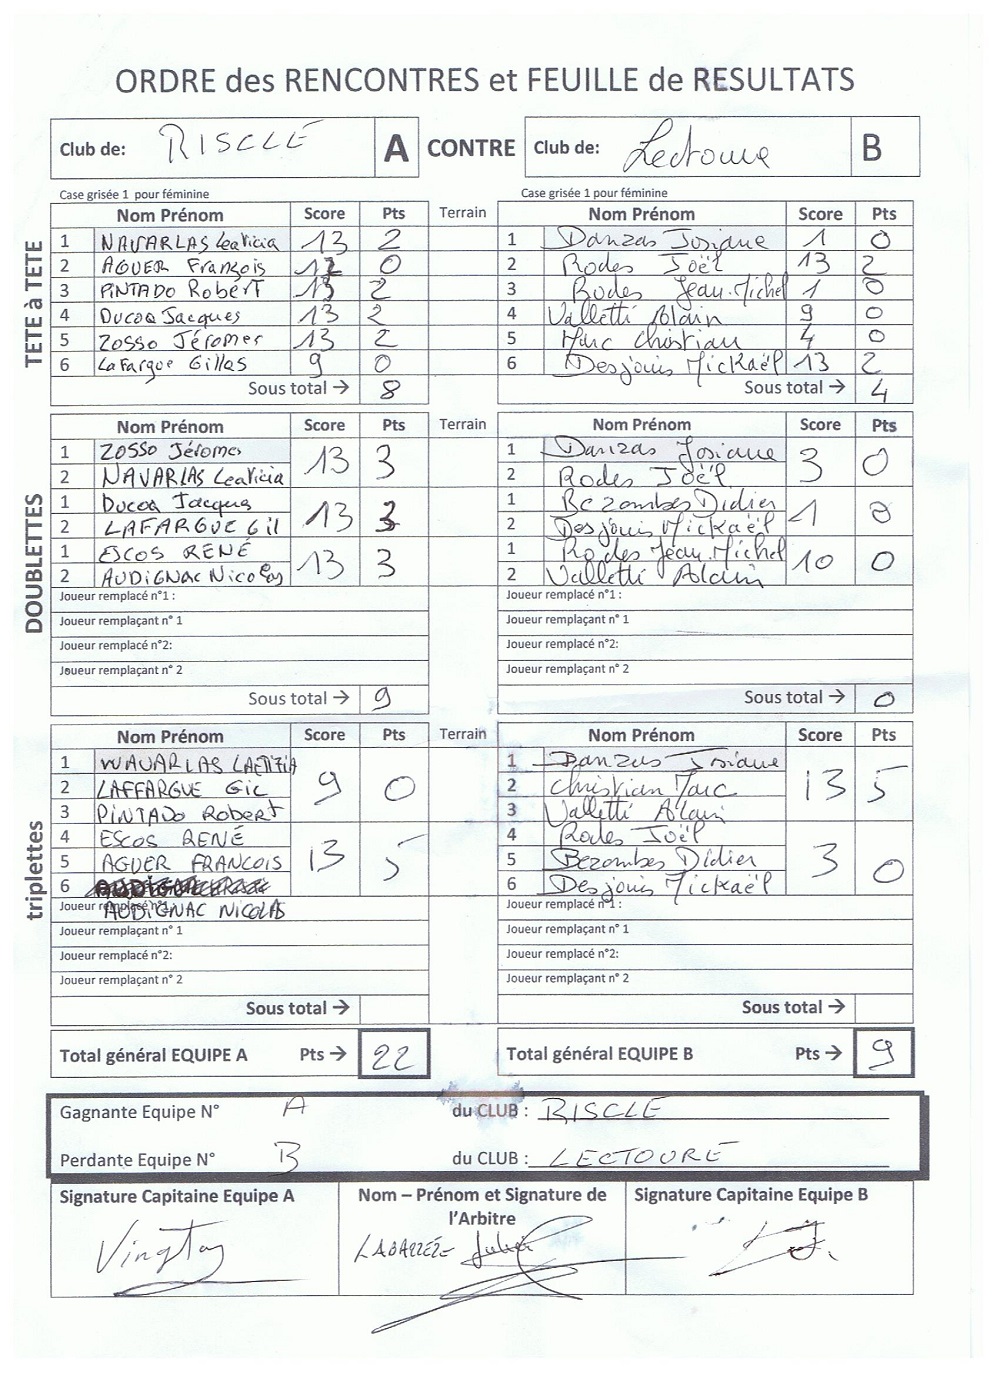 ORDRE des RENCONTRES et FEUILLE de RESULTATS
Club de: RISCLE A CONTRE Club de: Lectoure B
Case grisée 1 pour féminine Case grisée 1 pour féminine
TETE à TETE
Nom Prénom Score Pts Terrain Nom Prénom Score Pts
1 NAVARLAS Leaticia 13 2 1 Danzas Josiane 1 0
2 AGUER François 12 0 2 Rodes Joël 13 2
3 PINTADO Robert 13 2 3 Rodes Jean.Michel 1 0
4 Ducoq Jacques 13 2 4 Valletti Alain 9 0
5 Zosso Jéromer 13 2 5 Marc Christian 4 0
6 Lafargue Gilles 9 0 6 Desjouis Mickaël 13 2
Sous total → 8 Sous total → 4
DOUBLETTES
Nom Prénom Score Pts Terrain Nom Prénom Score Pts
1 Zosso Jéromer 13 3 1 Danzas Josiane 3 0
2 NAVARLAS Leaticia 2 Rodes Joël
1 Ducoq Jacques 13 3 1 Bezombes Didier 1 0
2 LAFARGUE Gil 2 Desjouis Mickaël
1 ESCOS RENÉ 13 3 1 Rodes Jean.Michel 10 0
2 AUDIGNAC Nicolas 2 Valletti Alain
Joueur remplacé n°1 : Joueur remplacé n°1 :
Joueur remplaçant n° 1 Joueur remplaçant n° 1
Joueur remplacé n°2: Joueur remplacé n°2:
Joueur remplaçant n° 2 Joueur remplaçant n° 2
Sous total → 9 Sous total → 0
triplettes
Nom Prénom Score Pts Terrain Nom Prénom Score Pts
1 NAVARLAS LAETITIA 9 0 1 Danzas Josiane 13 5
2 LAFFARGUE Gil 2 Christian Marc
3 PINTADO Robert 3 Valletti Alain
4 ESCOS RENÉ 13 5 4 Rodes Joël 3 0
5 AGUER FRANCOIS 5 Bezombes Didier
6 6 Desjouis Mickaël
Joueur remplacé n°1 : AUDIGNAC NICOLAS Joueur remplacé n°1 :
Joueur remplaçant n° 1 Joueur remplaçant n° 1
Joueur remplacé n°2: Joueur remplacé n°2:
Joueur remplaçant n° 2 Joueur remplaçant n° 2
Sous total → Sous total →
Total général EQUIPE A Pts → 22 Total général EQUIPE B Pts → 9
Gagnante Equipe N° A du CLUB : RISCLE
Perdante Equipe N° B du CLUB : LECTOURE
Signature Capitaine Equipe A Nom – Prénom et Signature de l'Arbitre Signature Capitaine Equipe B